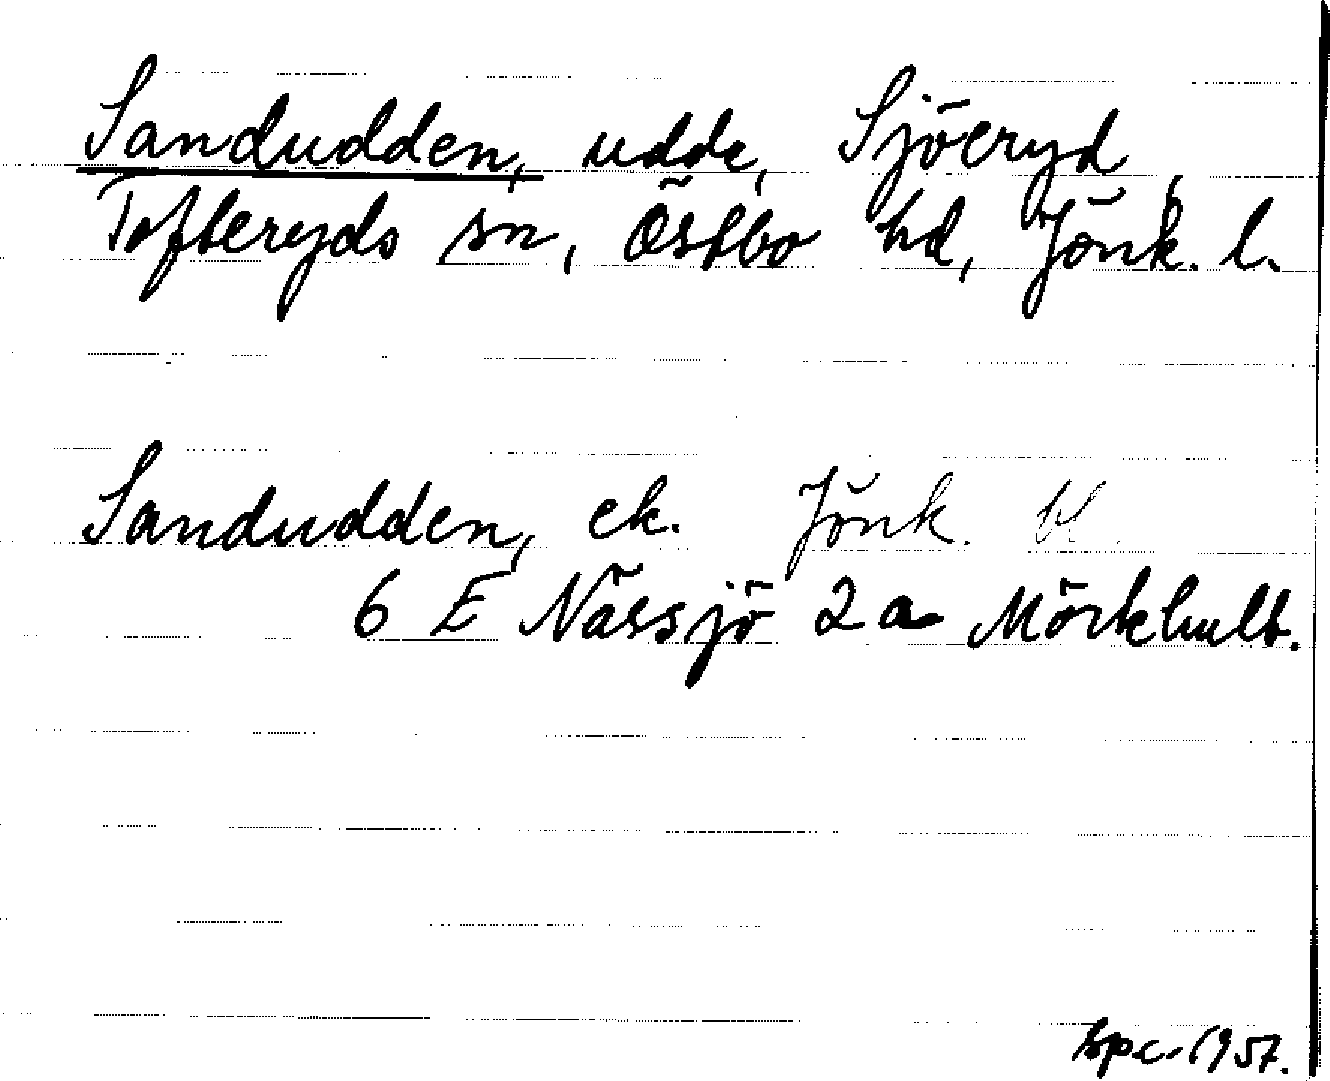 Sandudden, udde, Sjöeryd,
Tofteryds sn, Östbo hd, Jönk. l.
Sandudden, ek. Jönk. bl.
6 E Nässjö 2 a Mörkhult.
1957.